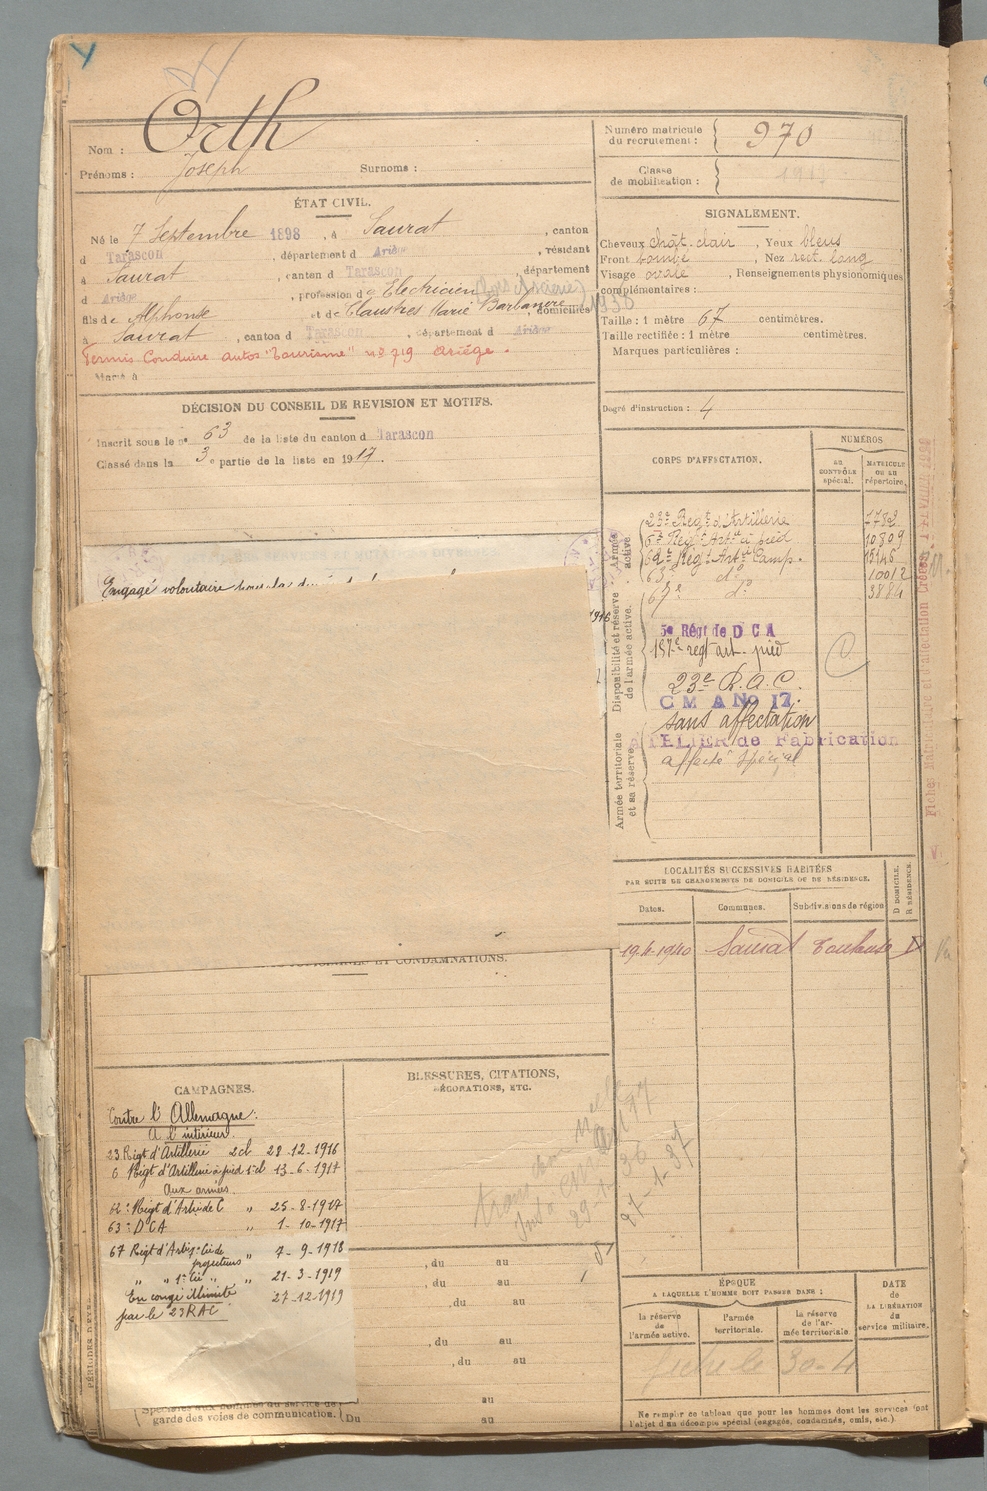 Orth
Nom :
Prénoms : Joseph Surnoms :
Numéro matricule du recrutement : 970
Classe de mobilisation : 1917
ÉTAT CIVIL.
Né le 7 Septembre 1898, à Saurat, canton
d Tarascon, département d Ariège, résidant
à Saurat, canton d Tarascon, département
d Ariège, profession d'e Electricien
fils de Alphonse et de Claustres Marie Barbanère, domiciliés
à Saurat, canton d Tarascon, département d Ariège
Permis Conduire autos "Tourisme" no 719 Ariège.
Marié à
SIGNALEMENT.
Cheveux chât. clair, Yeux bleus
Front bombé, Nez rect. long
Visage ovale, Renseignements physionomiques
complémentaires :
Taille : 1 mètre 67 centimètres.
Taille rectifiée : 1 mètre centimètres.
Marques particulières :
Degré d'instruction : 4
DÉCISION DU CONSEIL DE REVISION ET MOTIFS.
Inscrit sous le no 63 de la liste du canton d Tarascon
Classé dans la 3e partie de la liste en 1917.
Engagé volontaire pour la
CORPS D'AFFECTATION.
NUMÉROS
AU CONTRÔLE spécial.
MATRICULE OU AU répertoire.
Armée active
23e Regt d'Artillerie 7782
6e Regt Artie à pied 10809
62e Regt Artie Camp. 15146
63e do 10012
67e do 3884
Disponibilité et réserve de l'armée active.
5e Régt de D C A
157e regt art. pied
23e R.A.C.
C M A No 17.
Armée territoriale et sa réserve
sans affectation
ATELIER de Fabrication
affecté spécial
LOCALITÉS SUCCESSIVES HABITÉES
PAR SUITE DE CHANGEMENTS DE DOMICILE OU DE RÉSIDENCE.
Dates. Communes. Subdivisions de région
D DOMICILE.
R RÉSIDENCE.
19-4-1940 Saurat Toulouse D
ET CONDAMNATIONS.
CAMPAGNES.
Contre l'Allemagne :
A l'intérieur.
23 Rigt d'Artillerie 2cl 28-12-1916
6 Rigt d'Artillerie à pied 2cl 13-6-1917
Aux armées.
62e Rigt d'Artie de C " 25-8-1917
63e DCA " 1-10-1917
67 Rigt d'Art projecteurs " 7-9-1918
" " 1e Cie " " 21-3-1919
En congé illimité 27-12-1919
par le 23 RAC
BLESSURES, CITATIONS,
DÉCORATIONS, ETC.
29-1-36
27-1-37
, du au
, du au
, du au
, du au
, du au
au
Spécialités aux hommes du service de
garde des voies de communication. Du au
ÉPOQUE
A LAQUELLE L'HOMME DOIT PASSER DANS :
la réserve de l'armée active.
l'armée territoriale.
la réserve de l'armée territoriale
DATE DE LA LIBÉRATION du service militaire.
30-4
Ne remplir ce tableau que pour les hommes dont les services font
l'objet d'un décompte spécial (engagés, condamnés, omis, etc.).